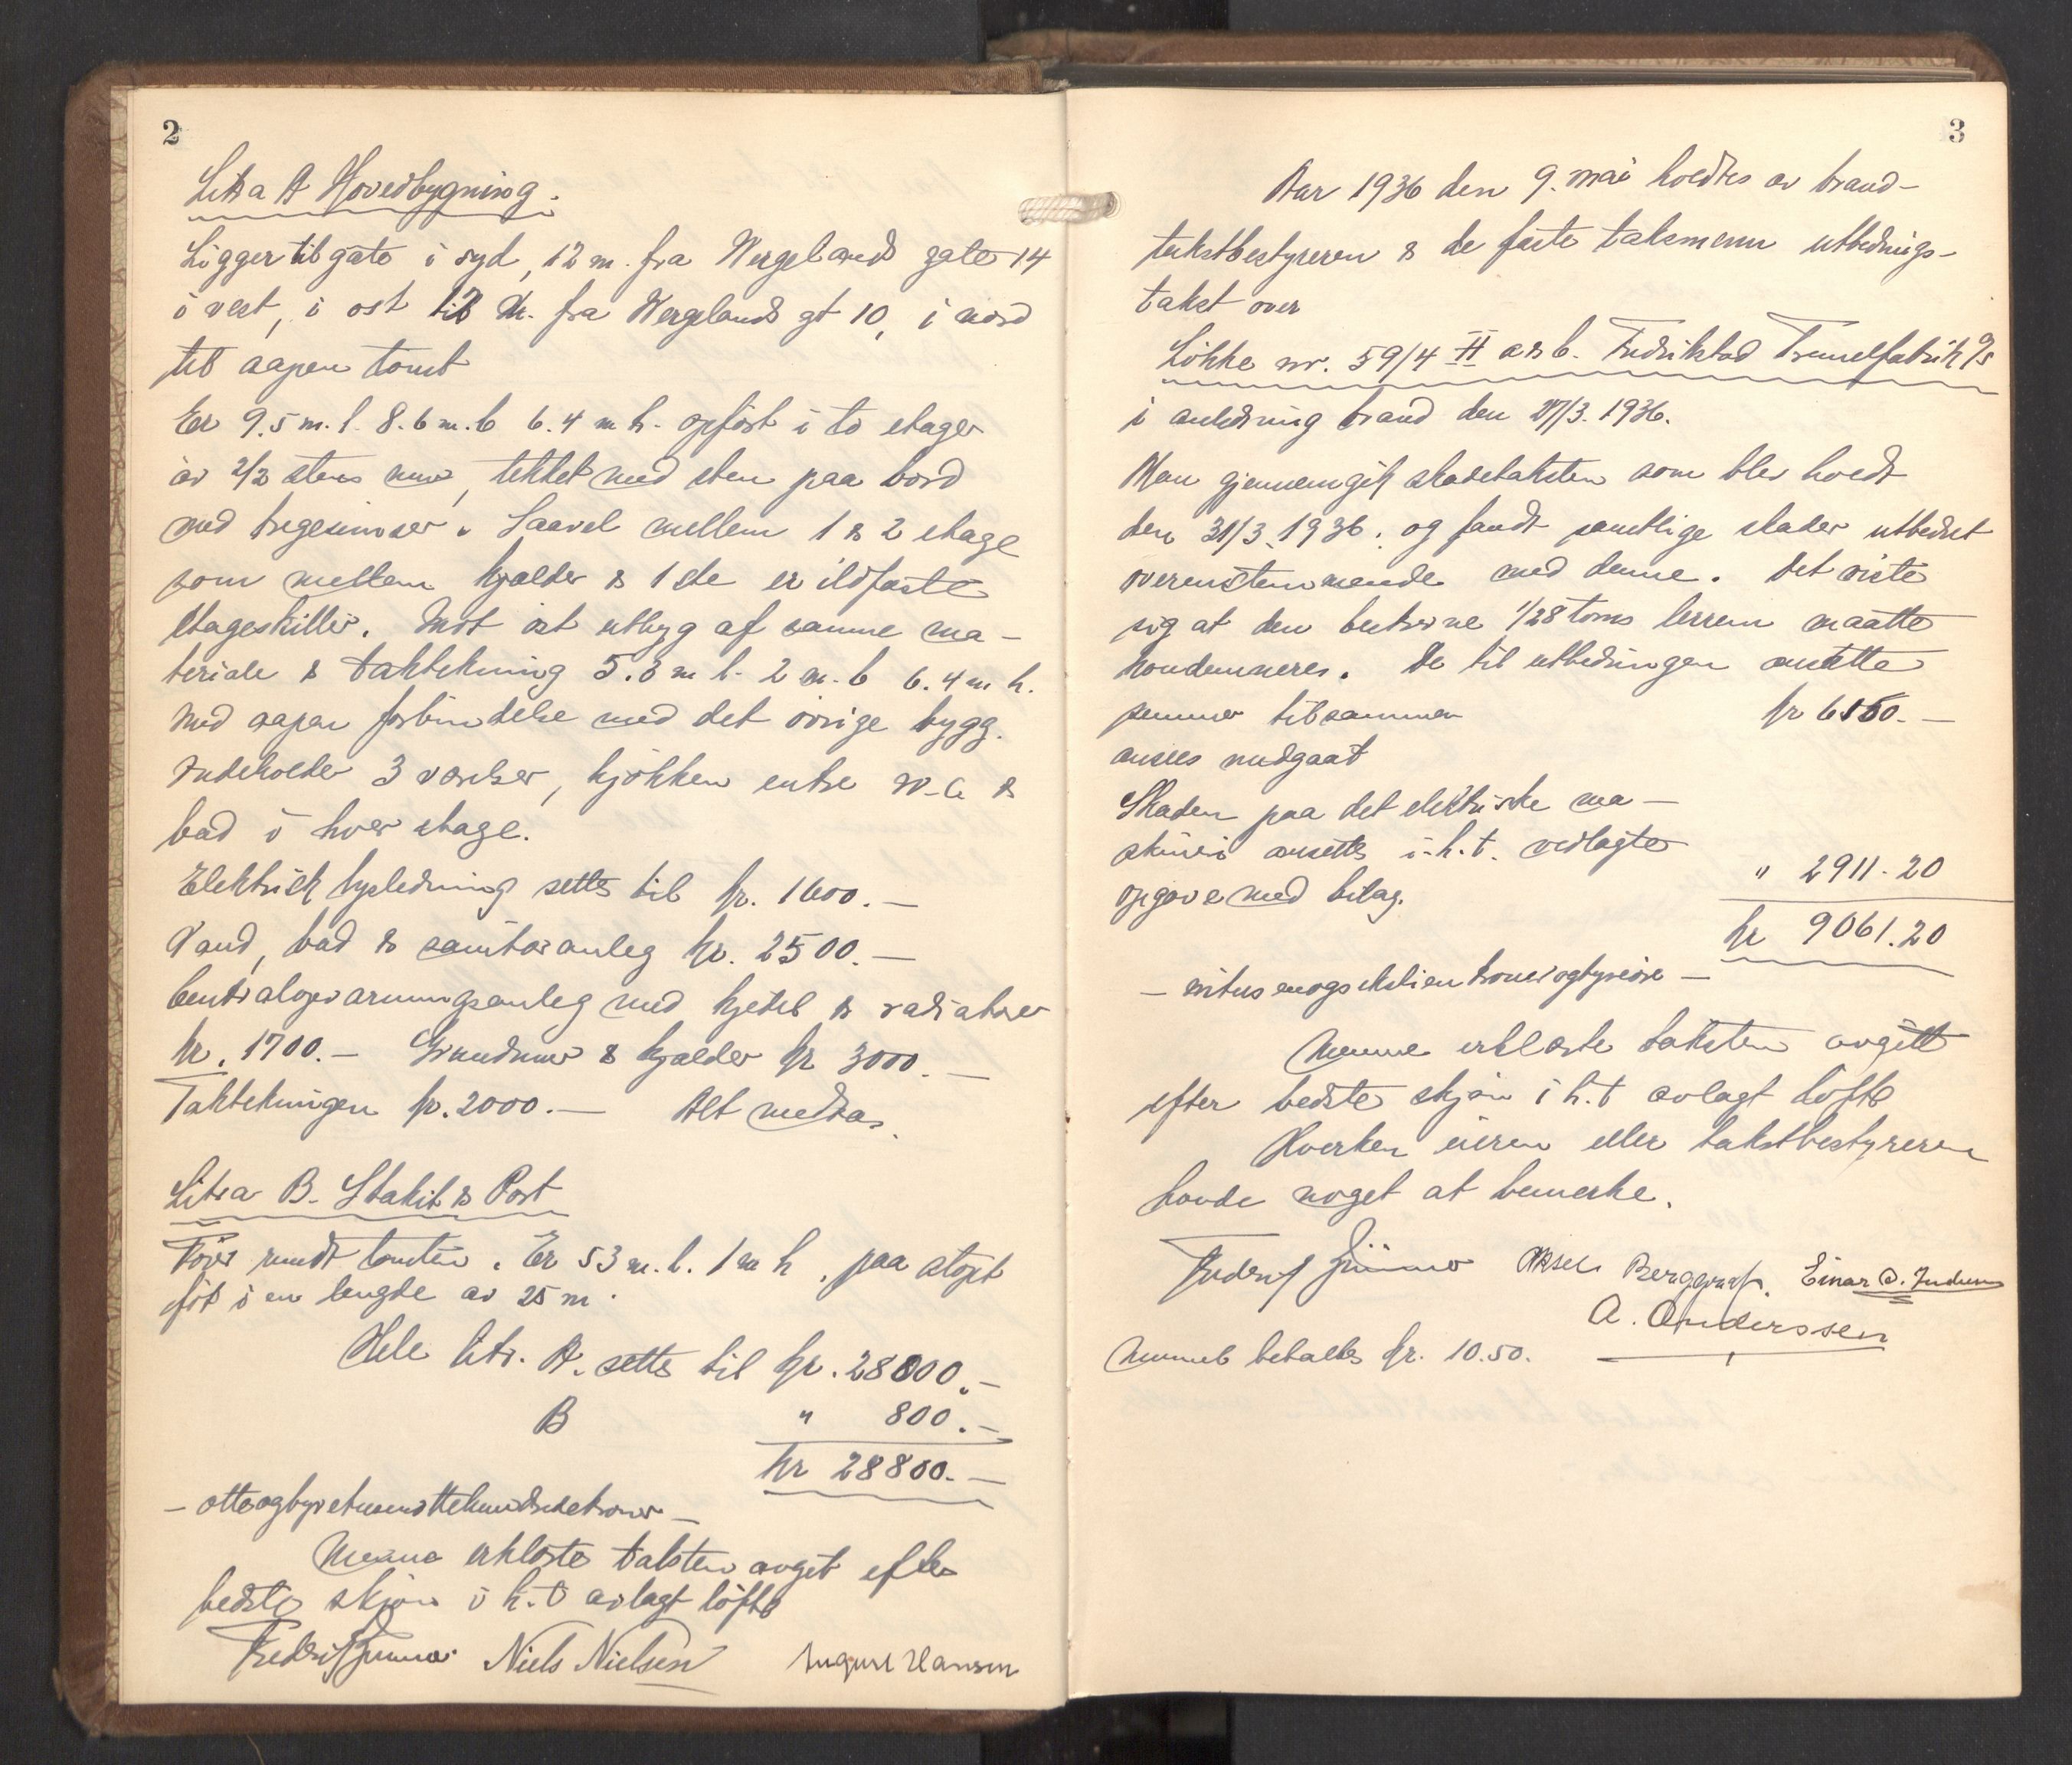 2
Litra A Hovedbygning.
Ligger til gate i syd, 12 m. fra Wergelands gate 14
i vest, i øst 12 m. fra Wergelands gt 10, i nord
til aapen tomt
Er 9.5 m. l. 8.6 m. b 6.4 m h. opført i to etager
av 2/2 stens mur, tekket med sten paa bord
med trægesimser. Saavel mellem 1 & 2 etage
som mellem kjælder & 1ste er ildfaste
etageskiller. Mot øst utbyg af samme ma-
teriale & taktekning 5.3 m l. 2 m. b 6.4 m h.
med aapen forbindelse med det øvrige bygg.
Indeholder 3 værelser, kjøkken entre W-C &
bad i hver etage.
Elektrisk lysledning settes til kr. 1600.-
Vand, bad & sanitæranleg kr. 2500.-
Centralopvarmningsanleg med kjetel & radiatorer
kr. 1700.- Grundmur & kjælder kr 3000.-
Taktekningen kr. 2000.- Alt medtas.
Litra B. Stakit & Port
Fører rundt tomten. Er 53 m. l. 1 m h. paa støpt
fot i en lengde av 25 m.
Hele litr. A. settes til kr. 28000.-
B " 800.-
kr 28800.-
- otteogtyvetusenottehundredekroner -
Mennene erklærte taksten avgit efter
bedste skjøn i h.t avlagt løfte
Fredrik Niels Nielsen August Hansen
3
Aar 1936 den 9. mai holdtes av brand-
takstbestyreren & de faste takstmenn utbedrings-
takst over
Løkke nr. 59/4 II a & b. Fredrikstad Tremelfabrik A/S
i anledning brand den 27/3. 1936.
Man gjennemgik skadetaksten som blev holdt
den 31/3 1936. og fandt samtlige skader utbedret
overenstemmende med denne. Det viste
sig at den 1/28 toms maatte
kondemneres. De til utbedringen ansatte
summer tilsammen kr 6150.-
ansees medgaat
Skaden paa det elektriske ma-
skineri ansettes i.h.t. vedlagte
opgave med bilag. " 2911.20
kr 9061.20
- nitusenogsekstien kroner og tyve øre -
Mennene erklærte taksten avgitt
efter bedste skjøn i h.t avlagt løfte
Hverken eieren eller takstbestyreren
havde noget at bemerke.
Fredrik Aksel Berggraf. Einar
A. Anderssen
betaltes kr. 10.50.